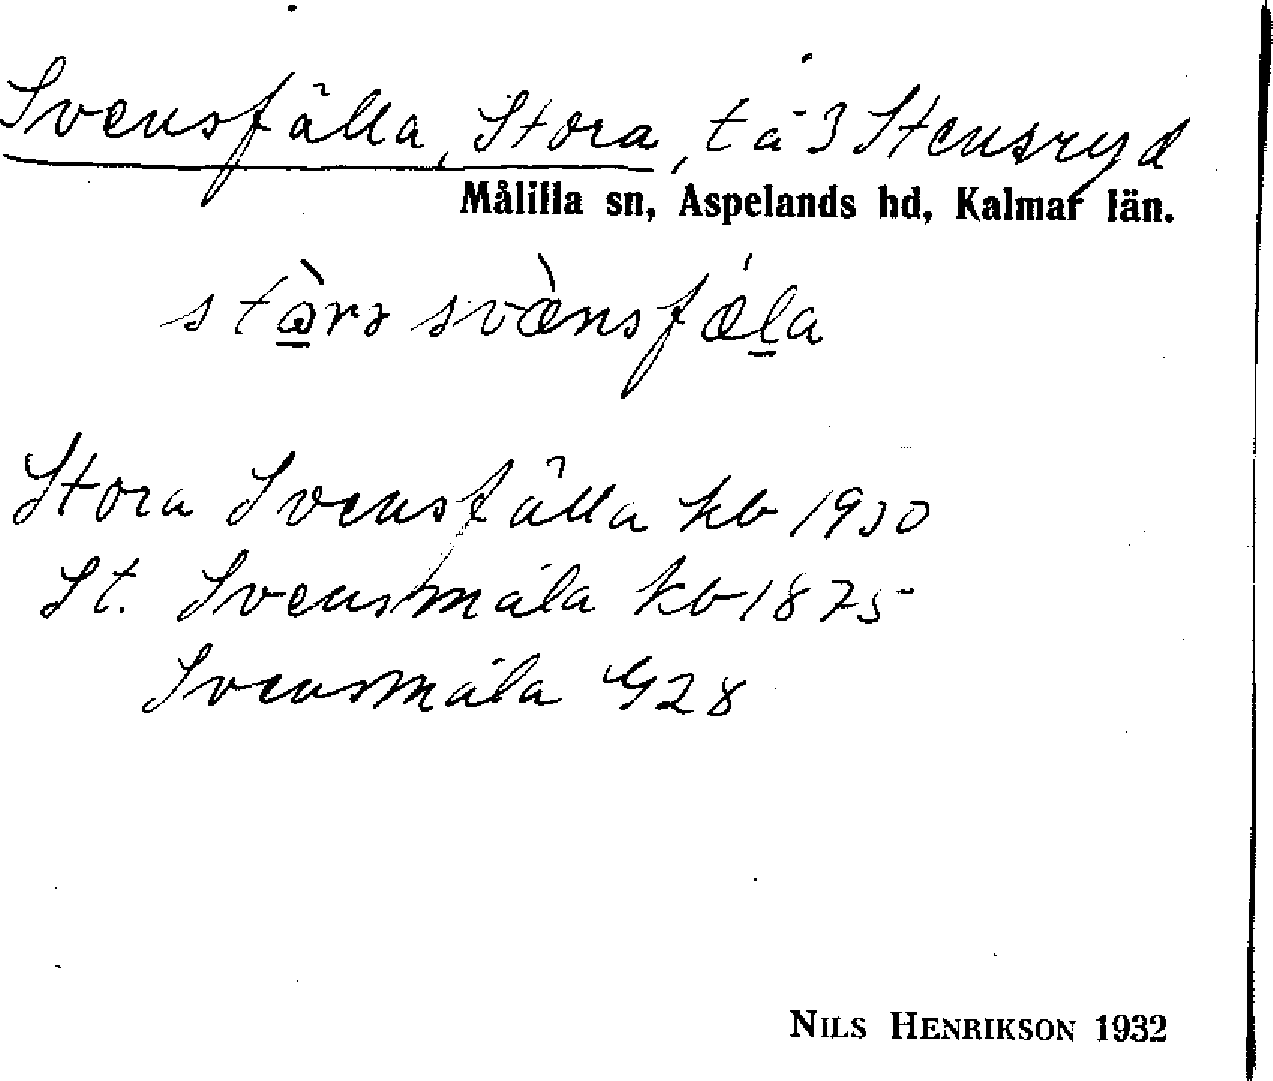 Svensfälla, Stora, t å 3 Stensryd
Målilla sn, Aspelands hd, Kalmar län.
Stora Svensfälla kb 1930
St. Svensmåla kb 1875
Svensmåla G 28
NILS HENRIKSON 1932